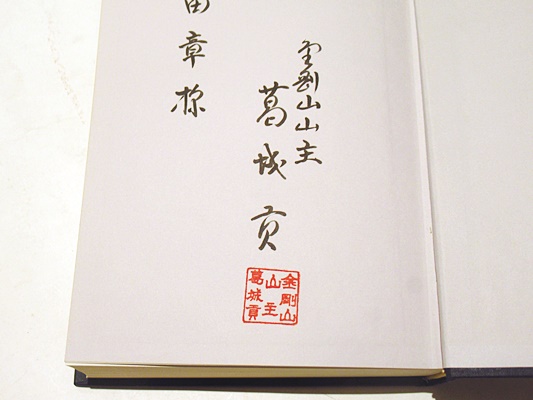 金剛山山主
葛城貢
田章様
金剛山
山主
葛城貢